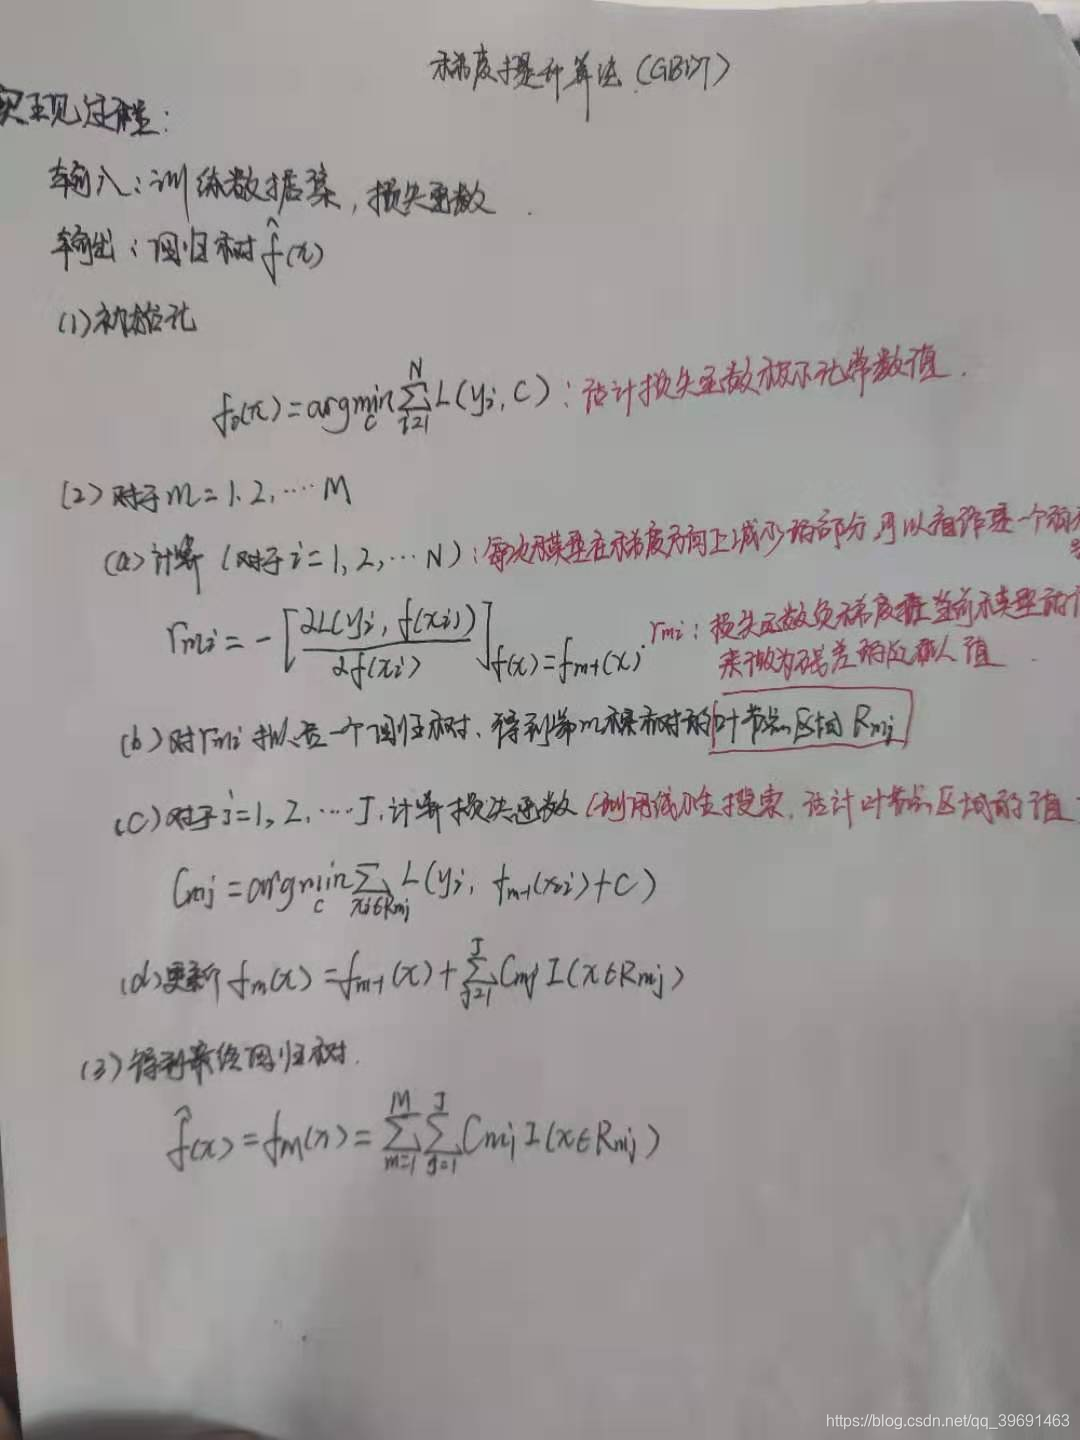 梯度提升算法 (GBDT)
实现过程:
输入:训练数据集, 损失函数.
输出:回归树 f̂(x)
(1) 初始化
f₀(x) = argmin_c Σ_{i=1}^{N} L(yᵢ, c) : 估计损失函数极小化常数值.
(2) 对于 m = 1, 2, ···· M
(a) 计算 (对于 i = 1, 2, ··· N) : 每次模型在梯度方向上减少的部分, 可以看作是一个
r_{mi} = -[∂L(yᵢ, f(xᵢ)) / ∂f(xᵢ)]_{f(x) = f_{m-1}(x)} . r_{mi} : 损失函数负梯度在当前模型的
来做为残差的近似值.
(b) 对 r_{mi} 拟合一个回归树, 得到第m棵树的叶节点区域 R_{mj}
(c) 对于 j = 1, 2, ···· J, 计算损失函数 (利用线性搜索, 估计叶节点区域的值
C_{mj} = argmin_c Σ_{xᵢ∈R_{mj}} L(yᵢ, f_{m-1}(xᵢ) + C)
(d) 更新 f_m(x) = f_{m-1}(x) + Σ_{j=1}^{J} C_{mj} I(x∈R_{mj})
(3) 得到最终回归树.
f̂(x) = f_M(x) = Σ_{m=1}^{M} Σ_{j=1}^{J} C_{mj} I(x∈R_{mj})
https://blog.csdn.net/qq_39691463